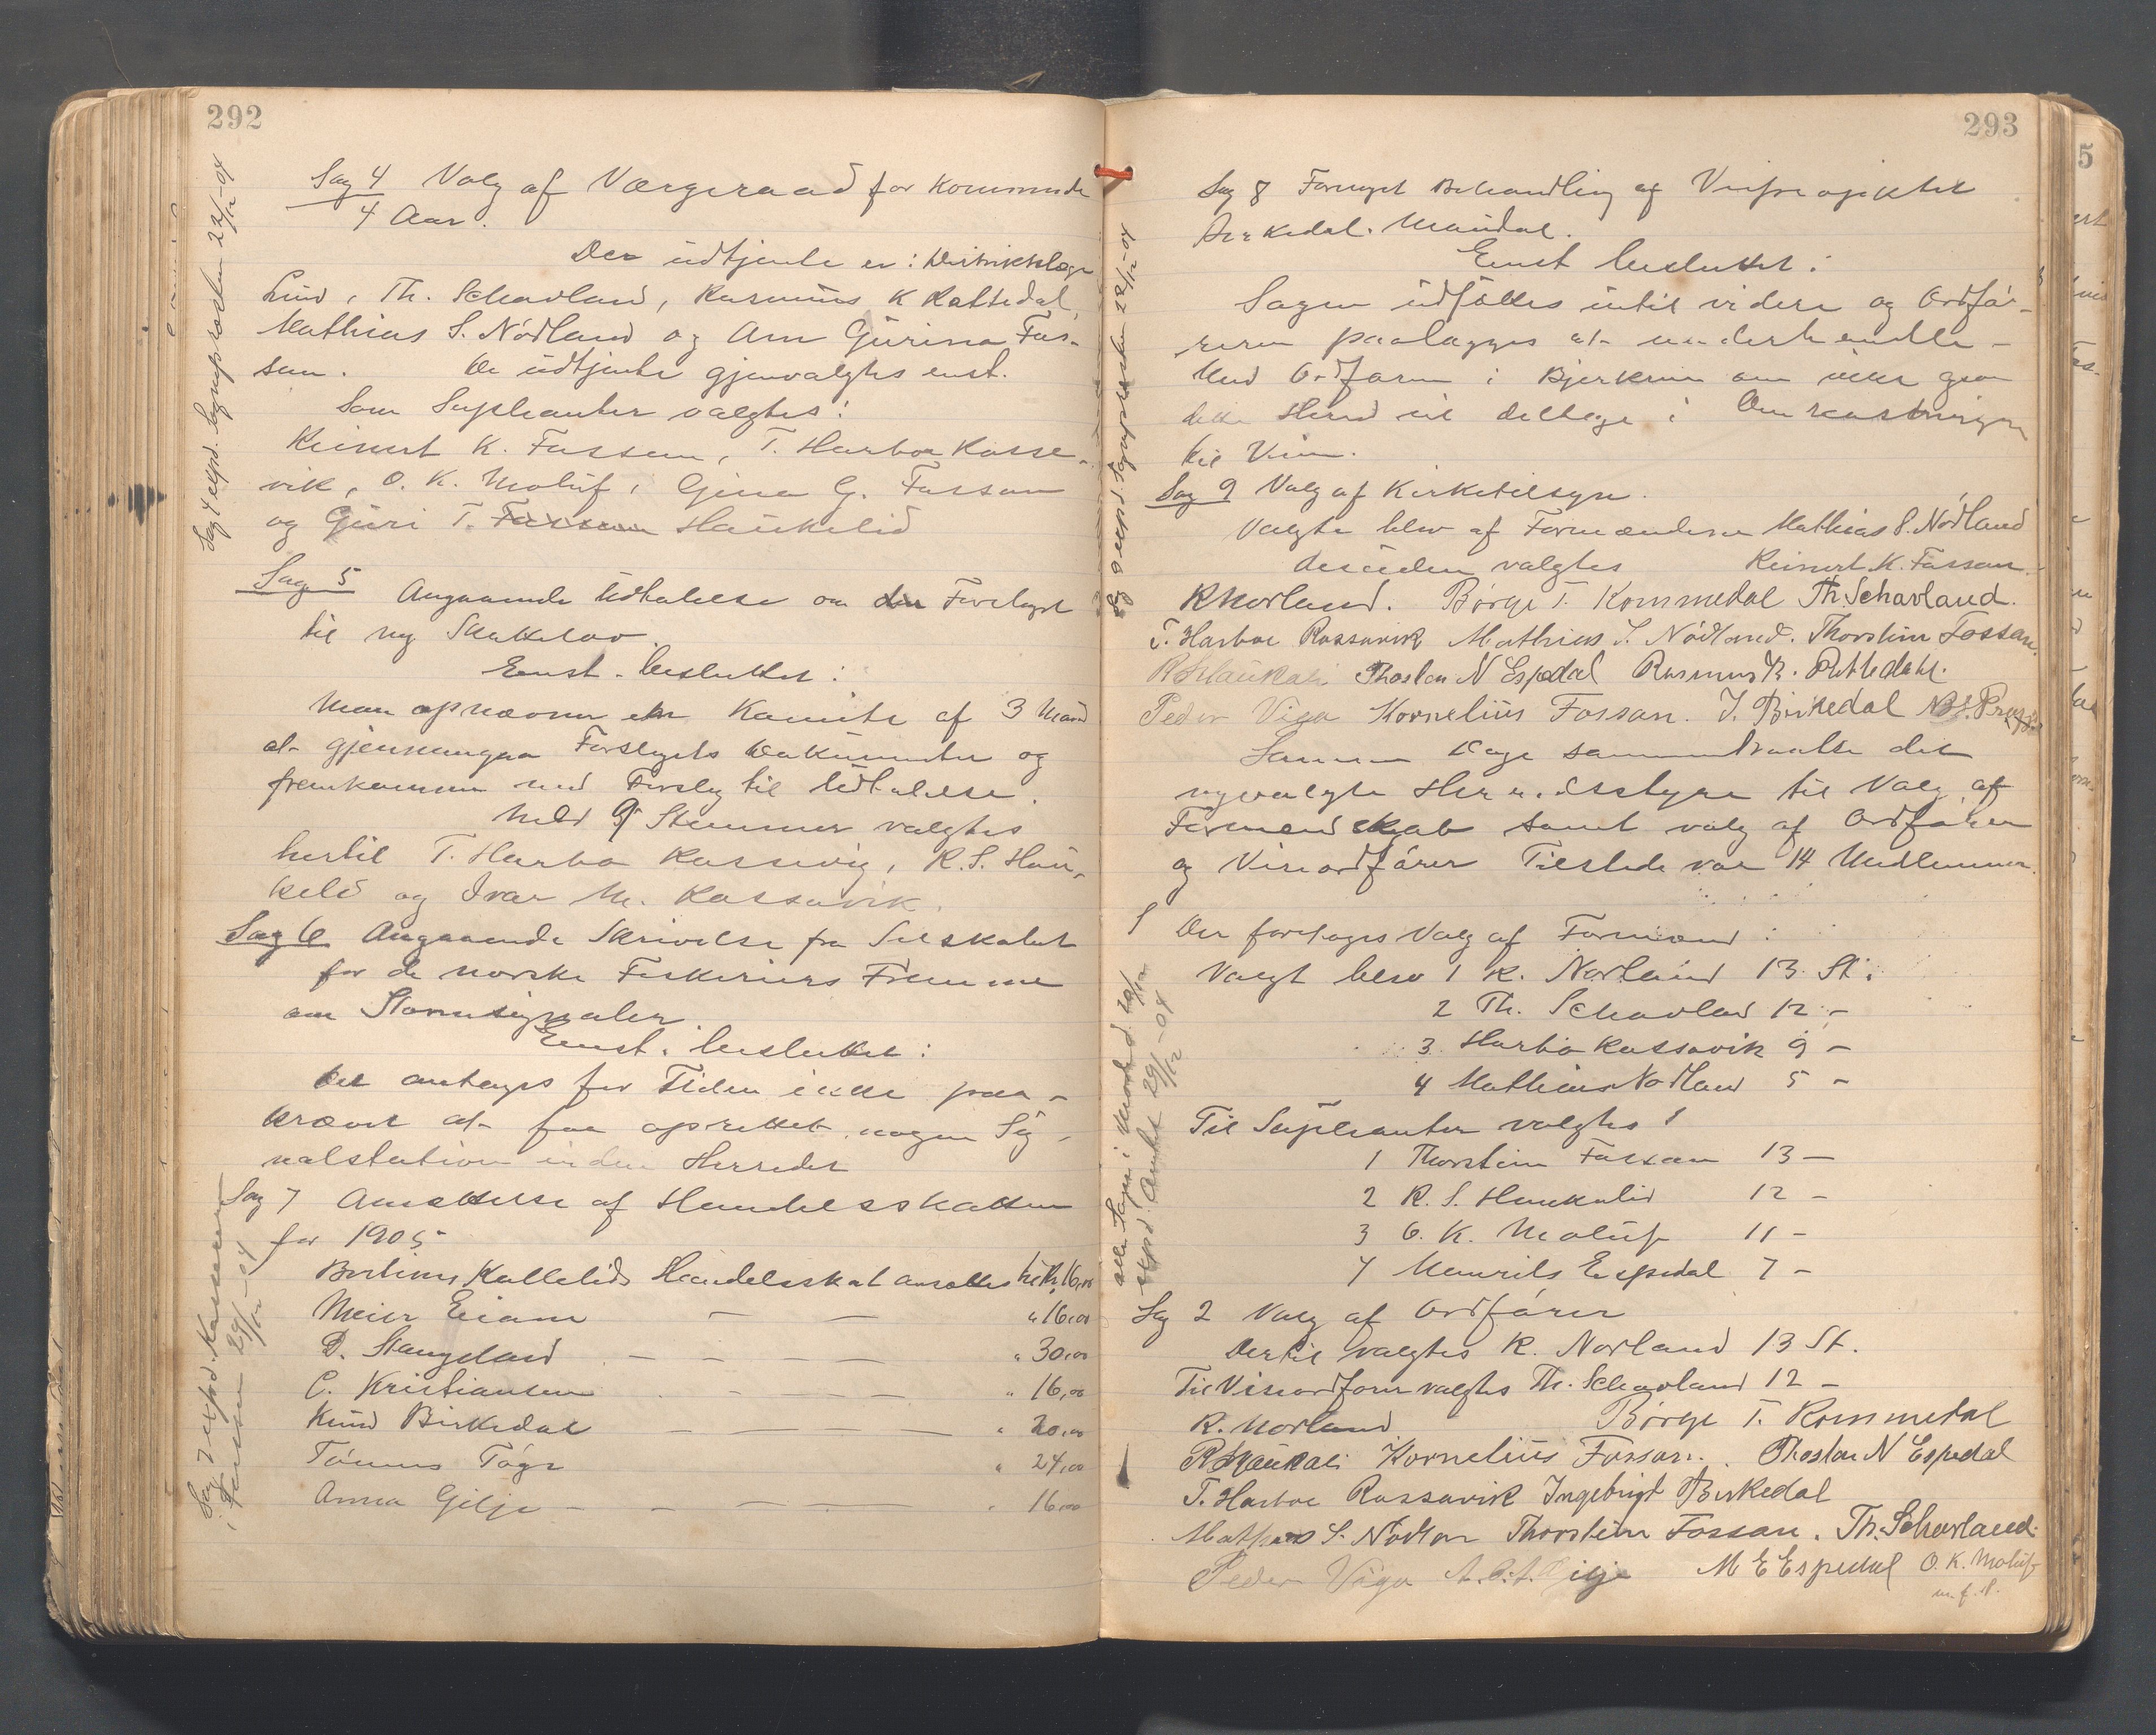 292
Sag 4 Valg af Værgeraad for kommende
4 Aar.
De udtjente er: Distriktslæge
Lund, Th. Schavland, Rasmus K Rettedal,
Mathias S. Nødland og Ane Gurina Fos-
san. De udtjente gjenvalgtes enst.
Som Supleanter valgtes:
Reinert K. Fossan, T. Harboe Rosse-
vik, O. K. Maluf, Gina G. Fossan
og Guri T. Fossan Haukelid
Sag 5 Angaaende Udtalelse om den Forelagt
til ny Skattelov.
Enst. besluttet:
Man opnævner en Komite af 3 Mænd
at gjennemgaa Forslagets Dokumenter og
fremkomme med Forslag til Udtalelse.
Med 9 Stemmer valgtes
hertil T. Harboe Rossavig, R. S. Hau-
kelid og Ivar M. Rossavik.
Sag 6 Angaaende Skrivelse fra Selskabet
for de norske Fiskeriers Fremme
om Stormsignaler.
Enst. besluttet:
Det antages for Tiden ikke paa-
krævet at faa oprettet nogen Sig-
nalstation inden Herredet
Sag 7 Ansættelse af Handelsskatten
for 1905
Bertinus Kallelids Handelsskat ansattes til Kr. 16,00
Meier Eiane — — " 16,00
D. Stangeland — — — — " 30,00
C. Kristiansen — — — " 16,00
Knud Birkedal — — — — " 20,00
Tønnes Tøgr " 24,00
Anna Gilje — — — — " 16,00
Sag 4 expd. Sogneprosten 22/12-04
Sag 7 expd. Kassereren
Fossan 29/12-04
293
Sag 8 Fornyet Behandling af Veiprojektet
Birkedal-Maudal.
Enst besluttet:
Sagen udsættes intil videre og Ordfø-
reren paalægges at underhandle
med Ordføren i Bjerkreim om
dette Herred vil deltage i Omkostningen
til Veien.
Sag 9 Valg af Kirketilsyn.
Valgte blev af Formændene Mathias S. Nødland
desuden valgtes Reinert K. Fossan.
R Norland. Børge T. Kommedal Th. Schavland.
T. Harboe Rossavik Mathias S. Nødland. Thorstein Fossan.
R S Haukali Thoston N Espedal Rasmus K. Rettedahl.
Peder Viga Kornelius Fossan. I. Birkedal
Samme Dage sammentraatte det
nyvalgte Herredsstyre til Valg af
Formendskab samt valg af Ordfører
og Viseordfører Tilstede var 14 Medlemmer.
1 Der foretoges Valg af Formænd:
Valgt blev 1 R. Norland 13 St.
2 Th. Schavland 12 -
3 Harbo Rossavik 9 -
4 Mathias Nødland 5 -
Til Supleanter valgtes:
1 Thorstein Fossan 13 -
2 R. S. Haukalid 12 -
3 O. K. Maluf 11 -
4 Maurits Espedal 7 -
Sag 2 Valg af Ordfører
Dertil valgtes R. Norland 13 St.
Til Viseordfører valgtes Th. Schavland 12 -
R. Norland Børge T. Kommedal
R S Haukali Kornelius Fossan. Thoston N Espedal
T. Harboe Rossavik Ingebrigt Birkedal
Mathias S. Nødlan Thorstein Fossan. Th. Schavland.
Peder Viga A. C. A. Gilje M E Espedal O. K. Maluf
m. f. P.
alle Sager i Marked 29/12
expd. Amtet 29/12-04
5